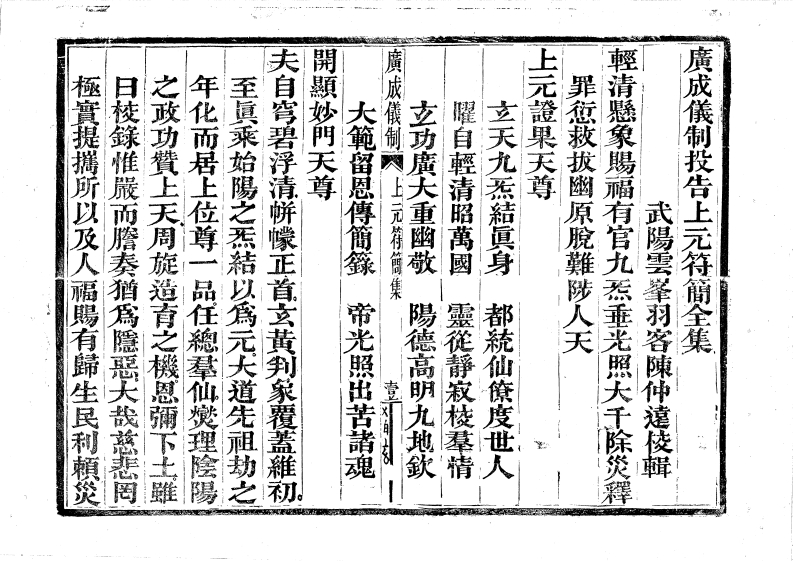 廣成儀制投告上元符簡全集
武陽雲峯羽客陳仲遠校輯
輕清懸象賜福有官九炁垂光照大千除災釋
罪愆救拔幽原脫難陟人天
上元證果天尊
玄天九炁結眞身　都統仙僚度世人
曜自輕清昭萬國　靈從靜寂校羣情
玄功廣大重幽敬　陽德高明九地欽
大範留恩傳簡籙　帝光照出苦諸魂
廣成儀制　上元符簡集　壹
開顯妙門天尊
夫自穹碧浮清帡幪正首玄黃判象覆蓋維初
至眞乘始陽之炁結以爲元大道先祖劫之
年化而居上位尊一品任總羣仙爕理陰陽
之政功贊上天周旋造育之機恩彌下土雖
曰校錄惟嚴而謄奏猶爲隱惡大哉慈悲罔
極實提攜所以及人福賜有歸生民利賴災